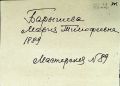 Барышева
Мария Тимофеевна
1889
Мастерская N 89